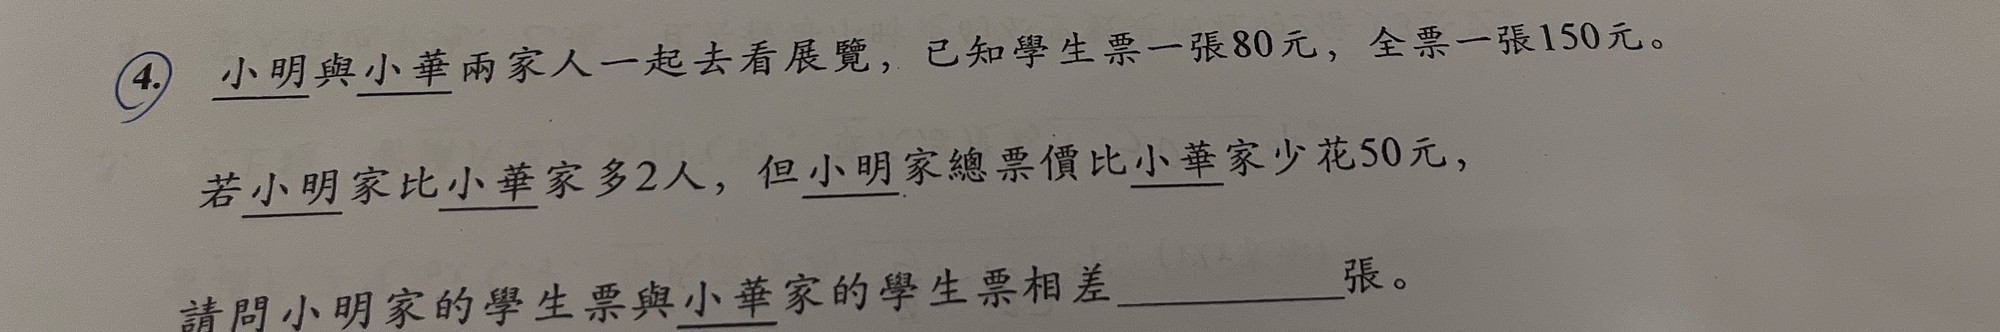 4. 小明與小華兩家人一起去看展覽，已知學生票一張80元，全票一張150元。
若小明家比小華家多2人，但小明家總票價比小華家少花50元，
請問小明家的學生票與小華家的學生票相差________張。